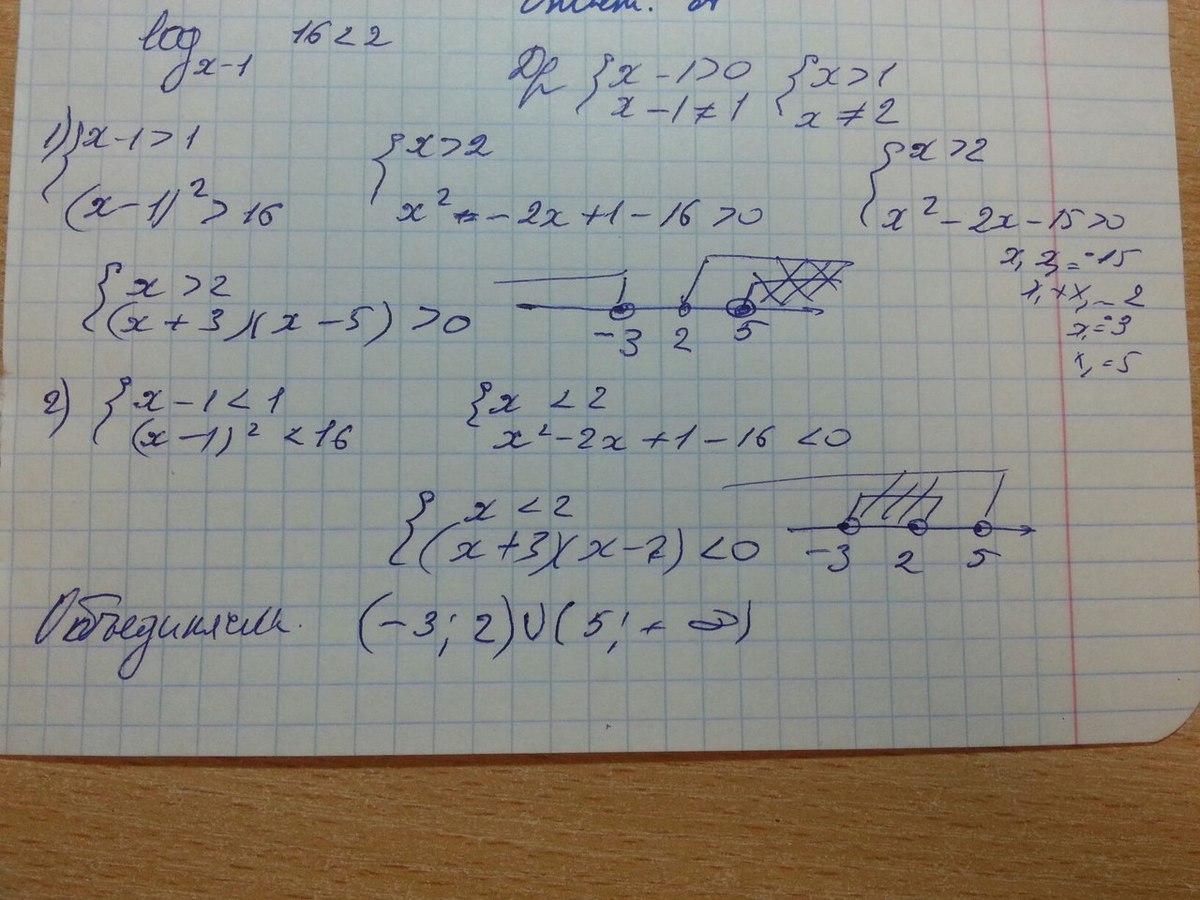 Ответ:
log_{x-1} 16 < 2
Др { x - 1 > 0 { x > 1
x - 1 ≠ 1 x ≠ 2
1) { x - 1 > 1 { x > 2 { x > 2
(x - 1)² > 16 x² - 2x + 1 - 16 > 0 x² - 2x - 15 > 0
x₁ x₂ = -15
x₁ + x₂ = 2
x₁ = -3
x₂ = 5
{ x > 2
(x + 3)(x - 5) > 0
-3 2 5
2) { x - 1 < 1 { x < 2
(x - 1)² < 16 x² - 2x + 1 - 16 < 0
{ x < 2
(x + 3)(x - 7) < 0
-3 2 5
Объединяем. (-3; 2) ∪ (5; + ∞)